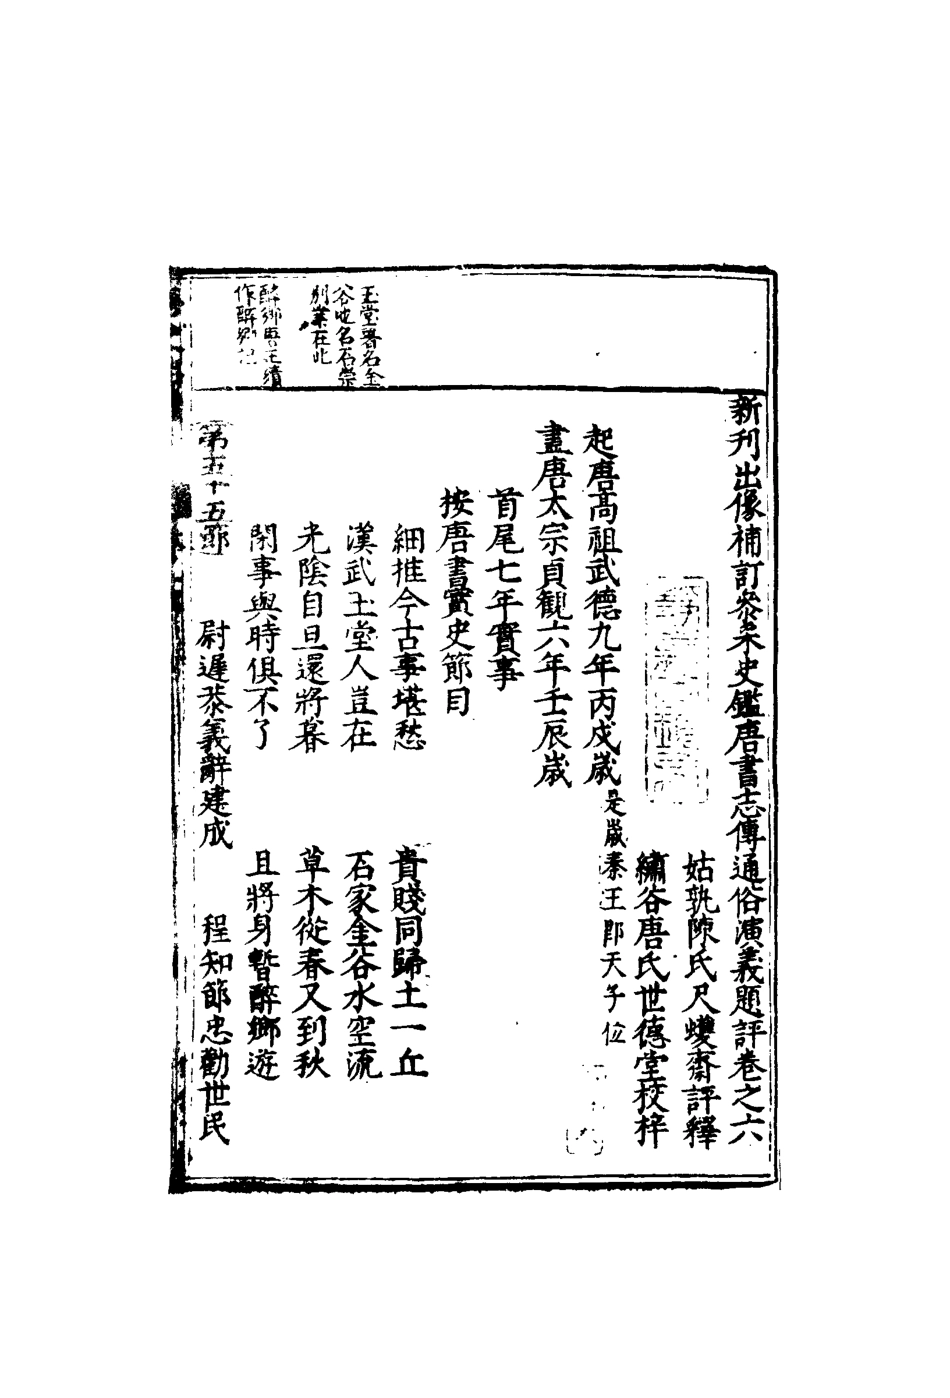 新刊出像補訂叅采史鑑唐書志傳通俗演義題評卷之六
姑孰陳氏尺蠖齋評釋
繡谷唐氏世德堂校梓
起唐髙祖武德九年丙戌歲是歲秦王即天子位
盡唐太宗貞觀六年壬辰歲
首尾七年實事
按唐書實史節目
細推今古事堪愁　貴賤同歸土一丘
漢武玉堂人豈在　石家金谷水空流
光陰自旦還將暮　草木從春又到秋
閑事與時俱不了　且將身暫醉鄉遊
第五十五節　尉遲恭義辭建成　程知節忠勸世民
玉堂署名金
谷地名石崇
別業在此
醉鄉唐王績
作醉鄉記